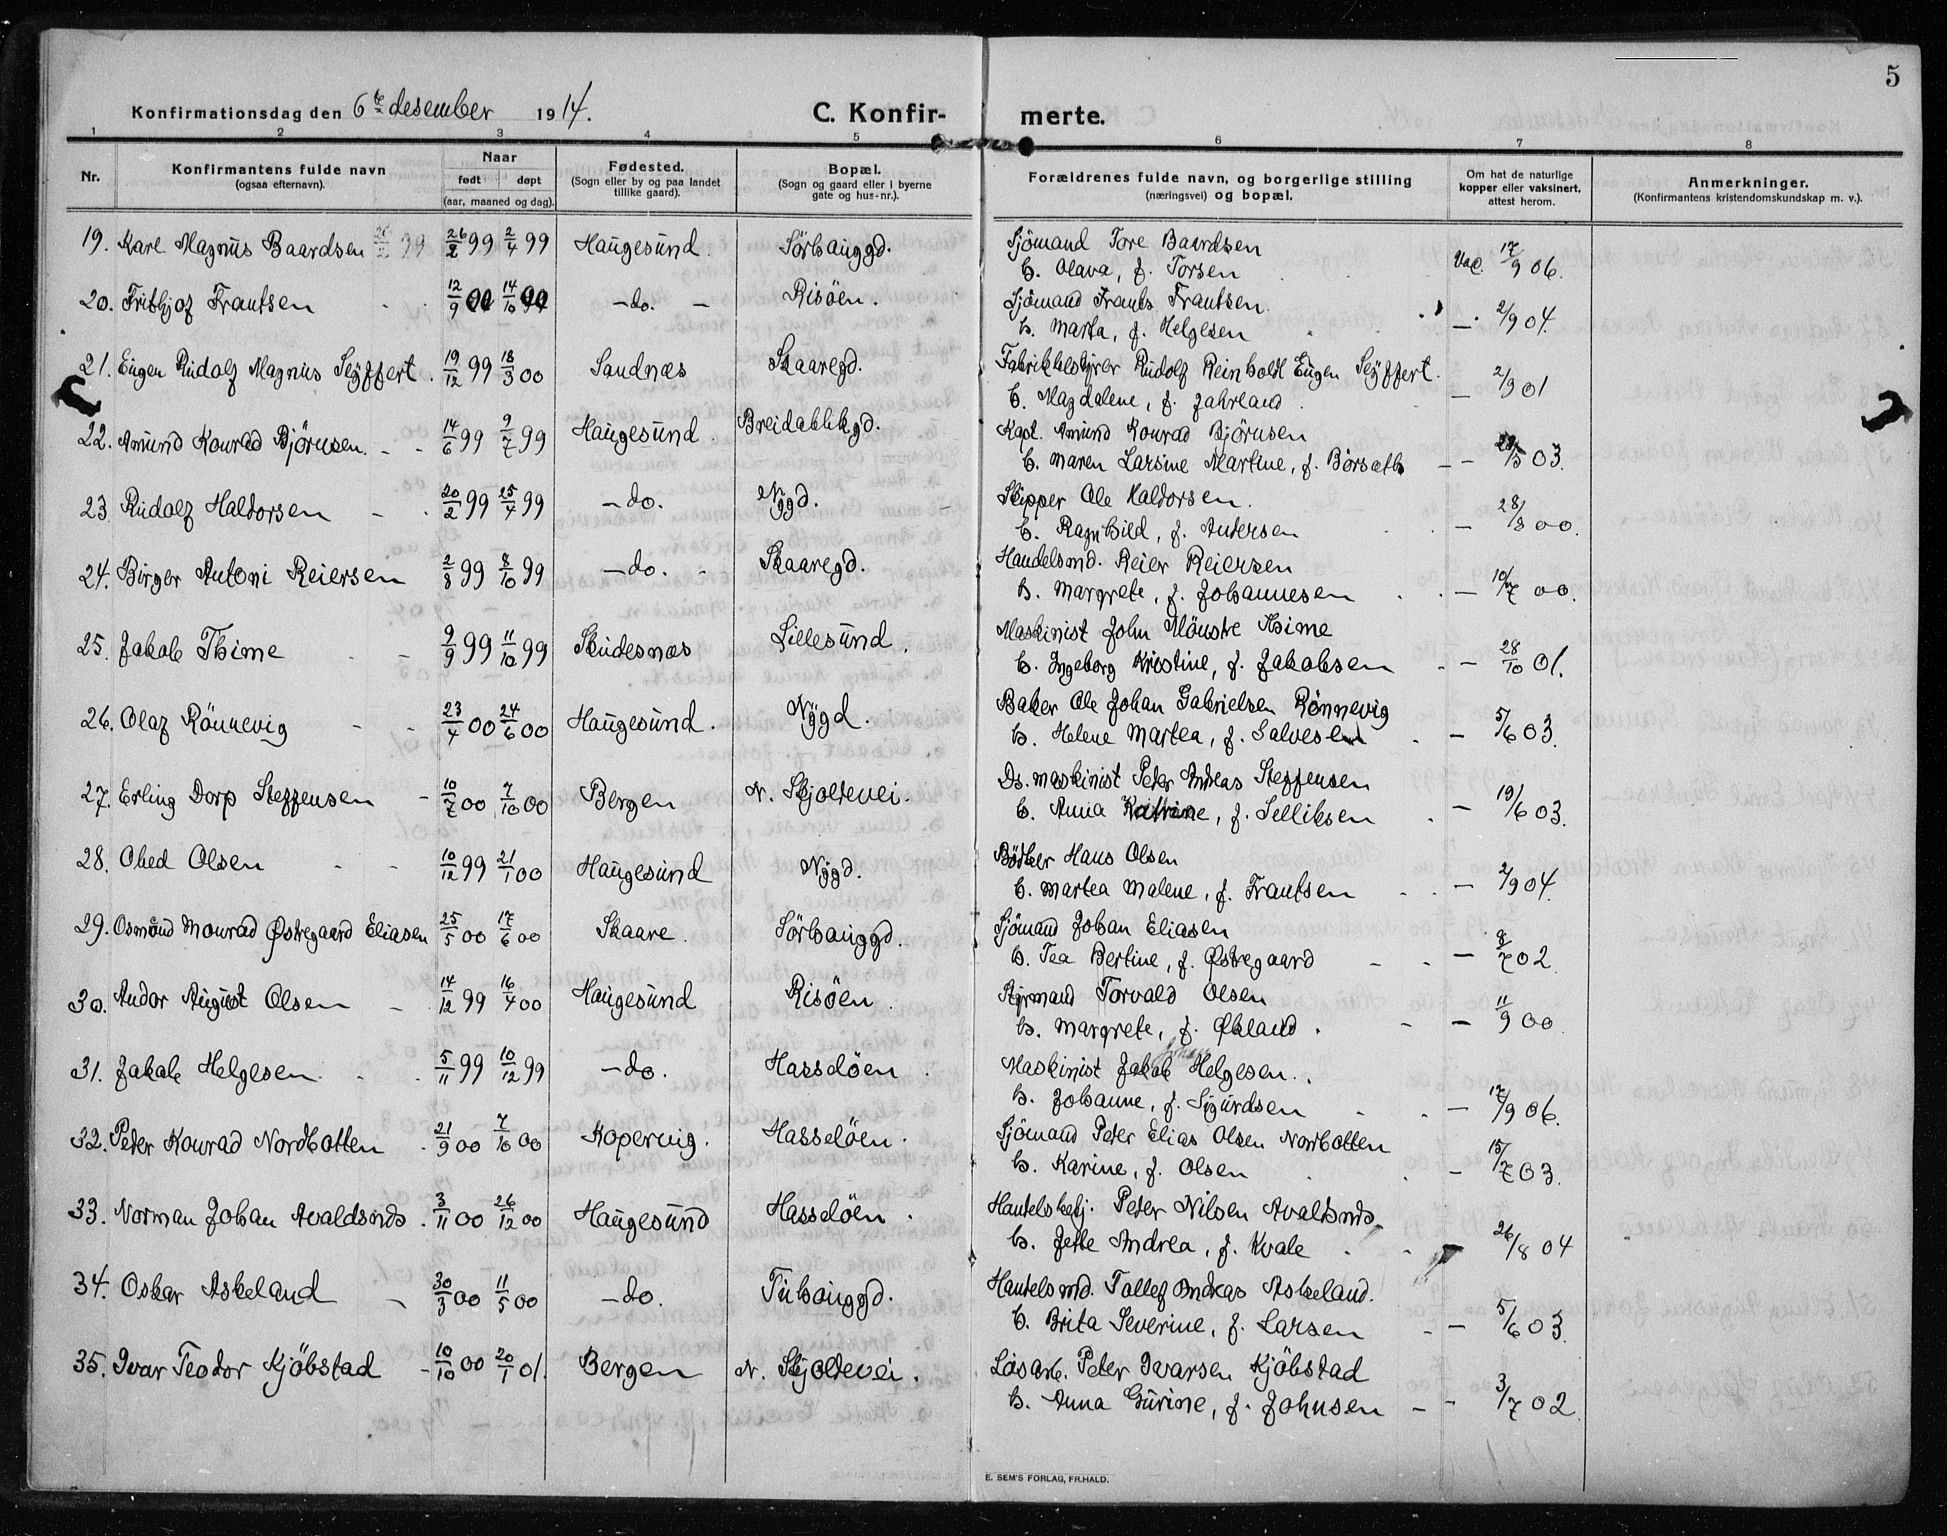 5
Konfirmationsdag den 6te desember 1914.
C. Konfir- merte.
1 2 3 4 5 6 7 8
Nr. Konfirmantens fulde navn (ogsaa efternavn). Naar født døpt (aar, maaned og dag). Fødested. (Sogn eller by og paa landet tillike gaard). Bopæl. (Sogn og gaard eller i byerne gate og hus-nr.). Forældrenes fulde navn, og borgerlige stilling (næringsvei) og bopæl. Om hat de naturlige kopper eller vaksinert, attest herom. Anmerkninger. (Konfirmantens kristendomskundskap m. v.).
19. Karl Magnus Baardsen 26/2 99 26/2 99 2/4 99 Haugesund. Sörhauggd. Sjömand Tore Baardsen
h. Olava, f. Torsen Vac. 17/9 06.
20. Fritjof Frantsen 12/9 00 14/10 00 -do.- Risöen. Sjömand Frants Frantsen.
h. Marta, f. Helgesen - 2/9 04.
21. Eugen Rudolf Magnus Seyffert. 19/12 99 18/3 00 Sandnæs Skaaregd. Fabrikkbestyrer Rudolf Reinholdt Eugen Seyffert.
h. Magdalene, f. Jahrland. - 2/9 01
22. Amund Konrad Björnsen. 14/6 99 9/7 99 Haugesund. Breidablikgd. Kapt. Amund Konrad Björnsen
h. Maren Larsine Martine, f. Börsæth - - 03.
23. Rudolf Haldorsen 20/2 99 25/4 99 -do. Nygd. Skipper Ole Haldorsen.
h. Ragnhild, f. Andersen - 28/8 00.
24. Birger Antoni Reiersen 2/8 99 8/10 99 -do. Skaaregd. Handelsmd. Reier Reiersen
h. Margrete, f. Johannesen - 10/7 00.
25. Jakob Thime 9/9 99 11/10 99 Skudesnæs Lillesund. Maskinist John Mönstre Thime
h. Ingeborg Kristine, f. Jakobsen - 28/10 01.
26. Olaf Rönnevig 23/4 00 24/6 00 Haugesund. Nygd. Baker Ole Johan Gabrielsen Rönnevig
h. Helene Martea, f. Salvesen - 5/6 03.
27. Erling Dorp Steffensen 10/7 00 7/10 00 Bergen N. Skjoldevei. Ds. maskinist Peter Andreas Steffensen
h. Anna Katrine, f. Selliksen - 19/6 03.
28. Obed Olsen 10/12 99 21/1 00 Haugesund Nygd. Bödker Hans Olsen
h. Martea Malene, f. Frantsen - 2/9 04.
29. Osmund Monrad Østregaard Eliasen 25/5 00 17/6 00 Skaare. Sörhauggd. Sjömand Johan Eliasen
h. Tea Bertine, f. Østregaard - 8/7 02.
30. Andor August Olsen 14/12 99 16/4 00 Haugesund Risöen. Styrmand Torvald Olsen
h. Margrete, f. Økland. - 11/9 00.
31. Jakob Helgesen. 5/11 99 10/12 99 -do. Hasselöen. Maskinist Jakob Johan Helgesen.
h. Johanne, f. Sigurdsen - 17/9 06.
32. Peter Konrad Nordbotten 21/9 00 7/10 00 Kopervig. Hasselöen. Sjömand Peter Elias Olsen Norbotten
h. Karine, f. Olsen - 15/7 03.
33. Norman Johan Avaldsnds. 3/11 00 26/12 00 Haugesund Hasselöen. Handelsbetj. Peter Nilsen Avaldsnds.
h. Jette Andrea, f. Kvale 26/8 04
34. Oskar Askeland 30/3 00 11/5 00 -do. Tuhauggd. Handelsmd. Tollef Andreas Askeland.
h. Brita Severine, f. Larsen - 5/6 03.
35. Ivar Teodor Kjöbstad 10/10 00 20/1 01. Bergen N. Skjoldevei. Lösarb. Peter Ivarsen Kjöbstad
h. Anna Gurine, f. Johnsen - 3/7 02.
E. SEM'S FORLAG, FR.HALD.